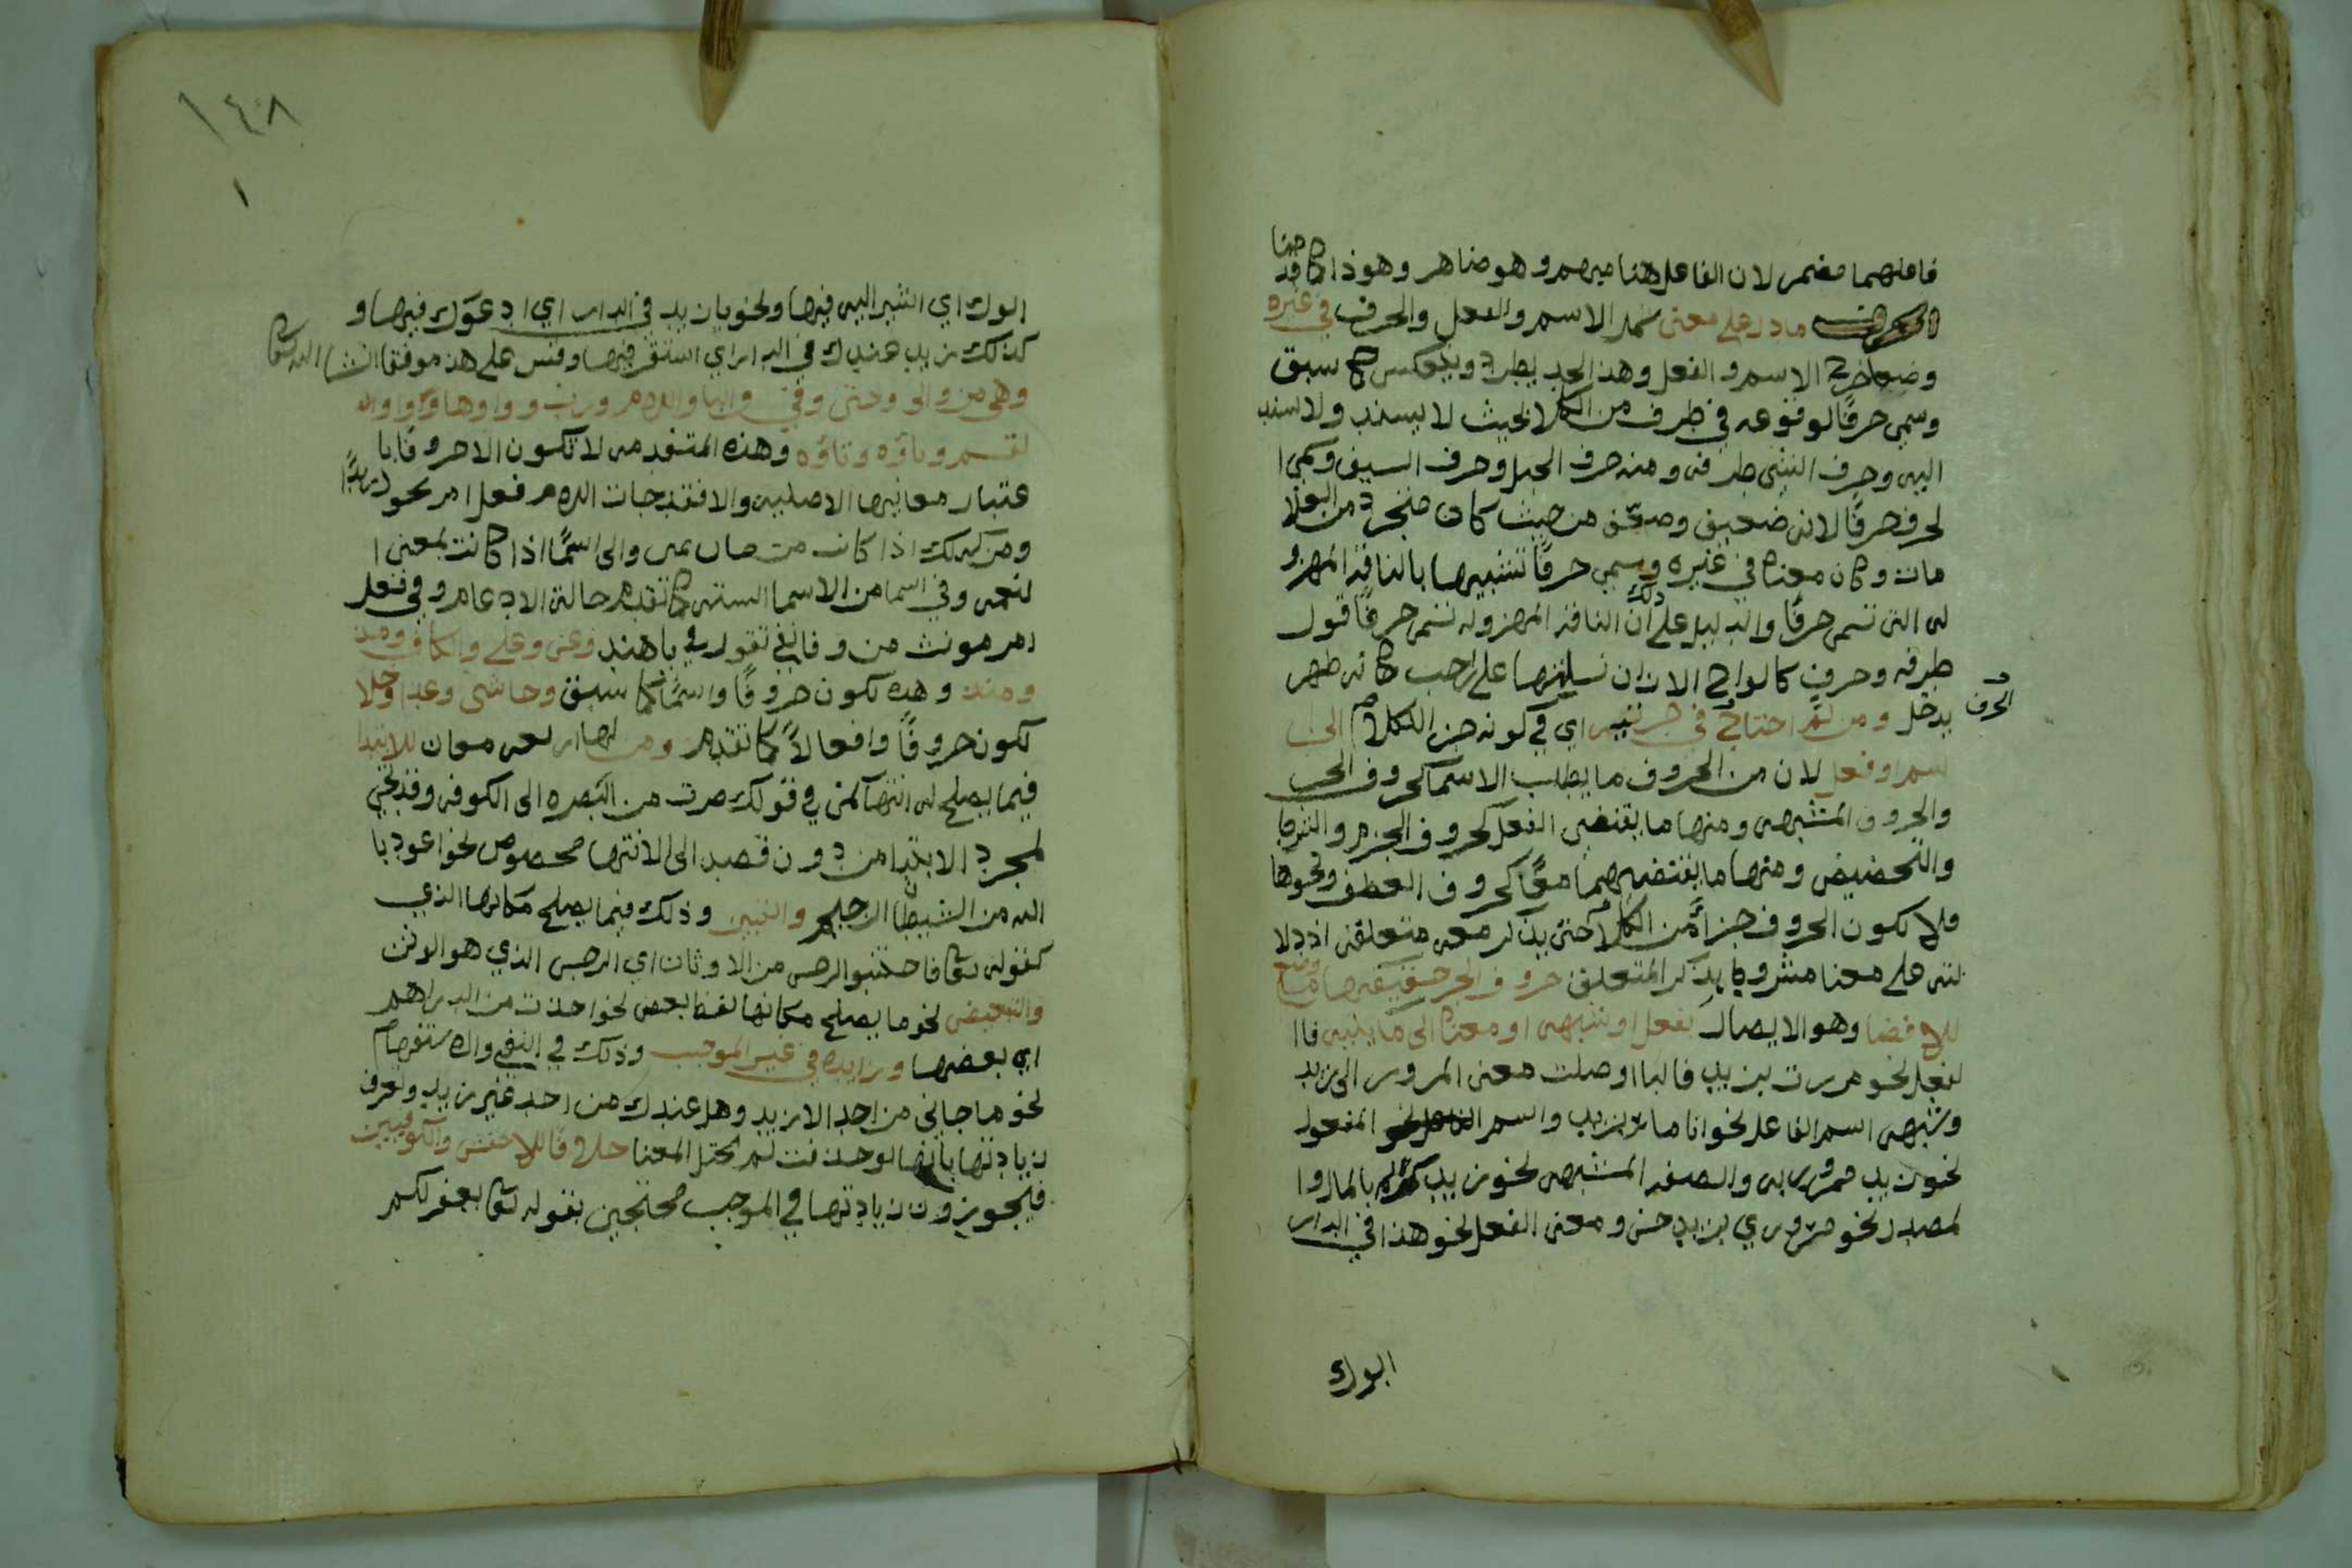 فاعلهما مضمر لان الفاعل هنا مبهم وهو ضاهر وهو ذا كما قدمنا
ما دل على معنى شمل الاسم والفعل والحرف في غيره
وضعا خرج الاسم والفعل وهذا الحد يطرد وينعكس كما سبق
وسمي حرفًا لوقوعه في طرف من الكلام بحيث لا يسند ولا اسند
اليه وحرف الشي طرفه ومنه حرف الجبل وحرف السيف وسمي ا
لحرف حرفًا لانه ضعيف وضعف من حيث كان منخرد من العلا
مات وكان معناه في غيره وسمي حرفًا تشبيها بالناقة المهزو
له التي تسمى حرفًا والدليل على ذلك ان الناقة المهزوله تسمى حرفًا قول
طرفه وحرف كالواح الاران نساتها على لاحب كانه ظهر
الحرف
يدخل ومن ثم احتاج في جزئيته اي في كونه جزء الكلام الى ا
سم او فعل لان من الحروف ما يطلب الاسما كحروف الجر
والحروف المشبهه ومنها ما يقتضي الفعل كحروف الجزم والشرط
والتحضيض ومنها ما يقتضيهما معًا كحروف العطف ونحوها
فلا تكون الحروف جزأً من الكلام حتى يذكر معه متعلقه اذ دلا
لته على معنا مشروط بذكر المتعلق حروف الجر حقيقتها ما وضع
للافضا وهو الايصال بفعل او شبهه او معناه الى ما يليه فا ا
لفعل نحو مررت بزيد فالبا اوصلت معنى المرور الى زيد
وشبهه اسم الفاعل نحو انا مار بزيد واسم المفعول
نحو زيد ممرور به والصفه المشبهه نحو زيد بالمال وا
لمصدر نحو مروري بزيد حسن ومعنى الفعل نحو هذا في الدار
ابوك
١٤٨
١
ابوك اي اشير اليه فيها ونحو يا زيد في الدار اي ادعوك فيها و
كذلك زيد عندك في الدار اي استقر فيها وقس على هذ موفقا انشا الله تعالى
وهي من والى وحتى وفي والبا واللام ورب وواوها وواو ا
لقسم وباؤه وتاؤه وهذه المتقدمه لا تكون الا حروفًا با
عتبار معانيها الاصليه والا فقد جات اللام فعل امر نحو ل زيدًا
ومن كذلك اذا كانت من مان يمين والى اسمًا اذا كانت بمعنى ا
لنعمه وفي اسما من الاسما السته كما تقدم حالة الادغام وفي فعل
امر مونث من وفا يفي تقول في يا هند وعن وعلى والكاف ومذ
ومنذ وهذه تكون حروفًا واسمًا كما سبق وحاشى وعدا وخلا
تكون حروفًا وافعالاً كما تقدم ومن لها اربعه معان للابتدا
فيما يصلح له انتها كمن في قولك سرت من البصره الى الكوفه وقد تجي
لمجرد الابتدا من دون قصد الى الانتها مخصوص نحو اعوذ با
الله من الشيطان الرجيم والتبيين وذلك فيما يصلح مكانها الذي
كقوله تعالى فاجتنبو الرجس من الاوثان اي الرجس الذي هو الوثن
والتبعيض نحو ما يصلح مكانها لفظ بعض نحو اخذت من الدراهم
اي بعضها وزايده في غير الموجب وذلك في النفي والاستفهام
نحو ما جاني من احد الا زيد وهل عندك من احد غير زيد وتعرف
زيادتها بانها لو حذفت لم يختل المعنا خلافًا للاخفش والكوفيين
فيجوزون زيادتها في الموجب محتجين بقوله تعالى يغفر لكم